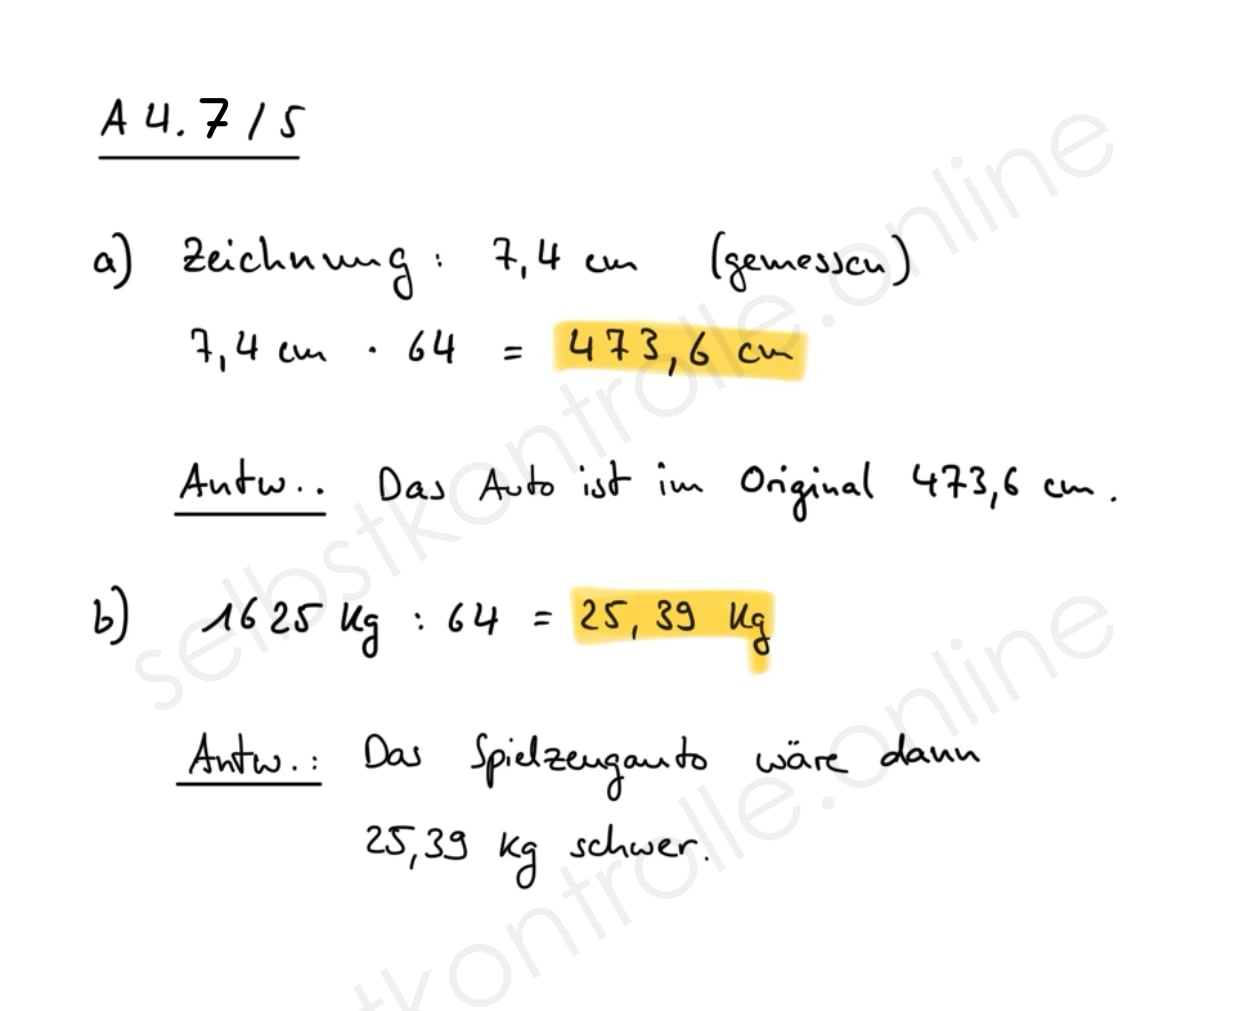 A 4.7/5
a) Zeichnung: 7,4 cm (gemessen)
7,4 cm · 64 = 473,6 cm
Antw.. Das Auto ist im Original 473,6 cm.
b) 1625 kg : 64 = 25,39 kg
Antw.: Das Spielzeugauto wäre dann
25,39 kg schwer.
selbstkontrolle.online
selbstkontrolle.online